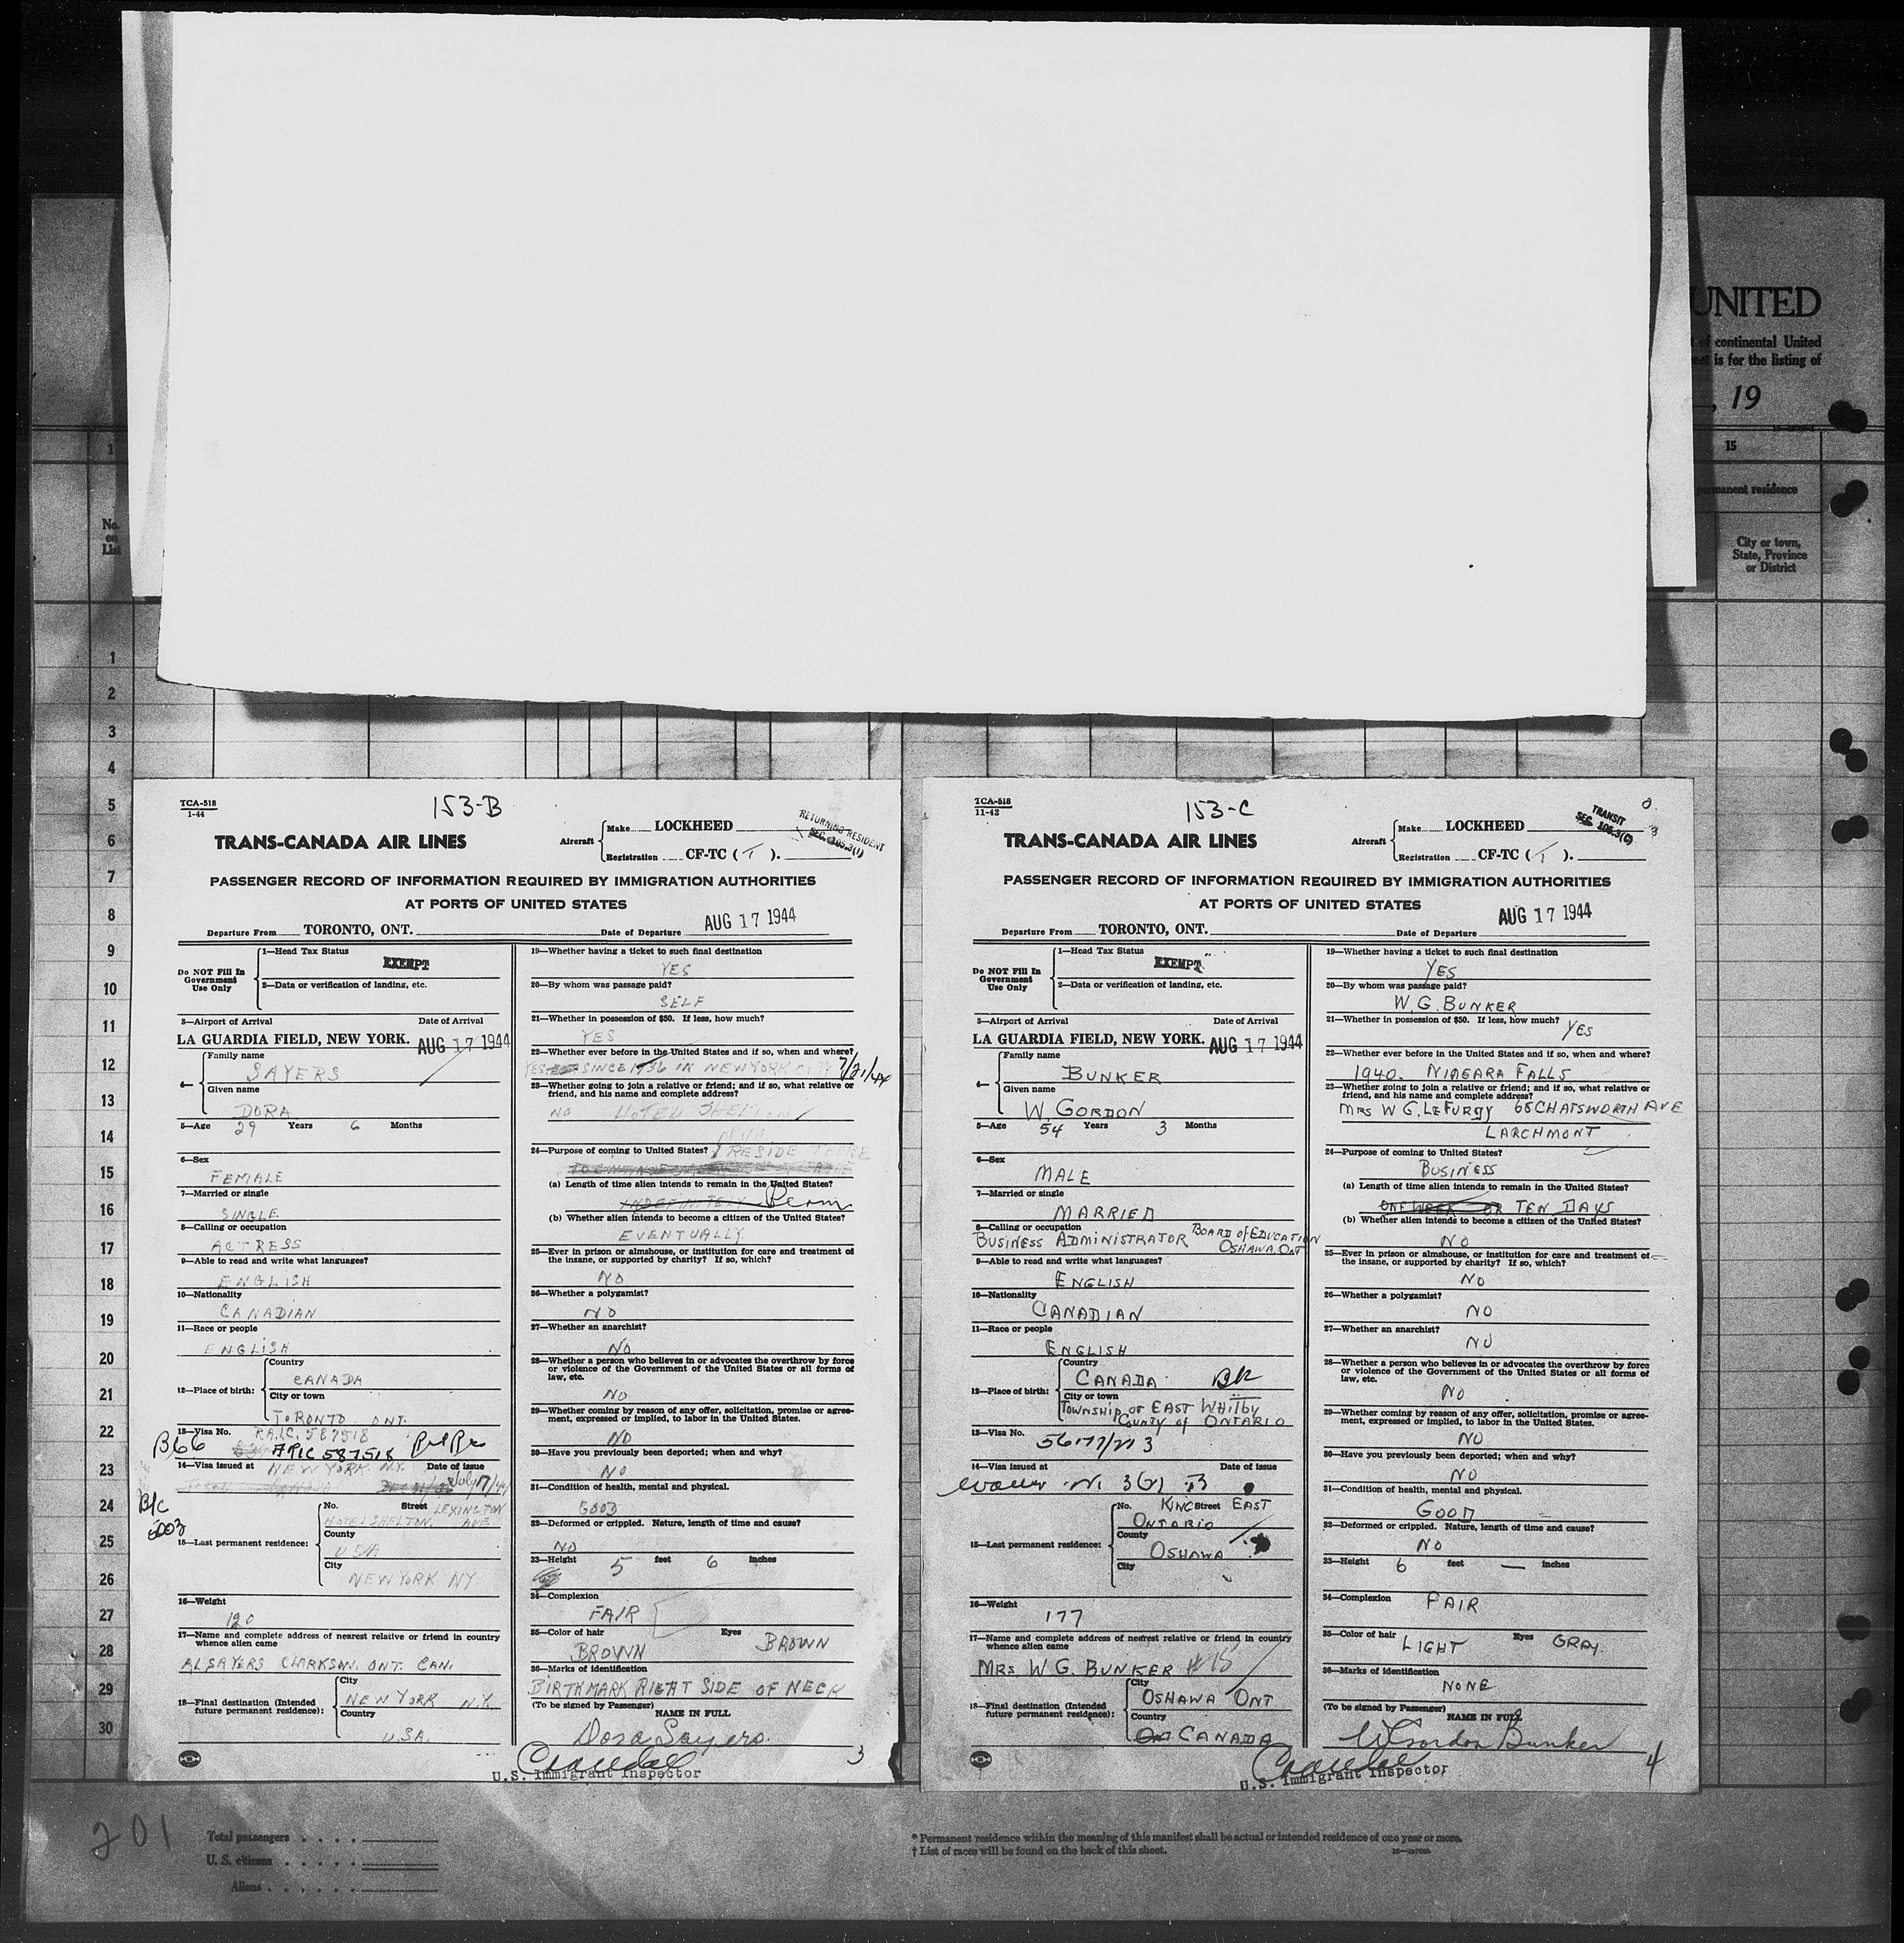 UNITED
of continental United
is for the listing of
, 19
15
permanent residence
City or town,
State, Province
or District
1
No.
on
List
1
2
3
4
5
6
7
8
9
10
11
12
13
14
15
16
17
18
19
20
21
22
23
24
25
26
27
28
29
30
TCA-518
1-44
153-B
RETURNING RESIDENT
SEC. 105.3(1)
TRANS-CANADA AIR LINES
Aircraft
Make LOCKHEED
Registration CF-TC ( T ).
PASSENGER RECORD OF INFORMATION REQUIRED BY IMMIGRATION AUTHORITIES
AT PORTS OF UNITED STATES
Departure From TORONTO, ONT. Date of Departure AUG 17 1944
Do NOT Fill In
Government
Use Only
1—Head Tax Status
EXEMPT
2—Data or verification of landing, etc.
3—Airport of Arrival Date of Arrival
LA GUARDIA FIELD, NEW YORK. AUG 17 1944
4—
Family name
SAYERS
Given name
DORA
5—Age 29 Years 6 Months
6—Sex
FEMALE
7—Married or single
SINGLE
8—Calling or occupation
ACTRESS
9—Able to read and write what languages?
ENGLISH
10—Nationality
CANADIAN
11—Race or people
ENGLISH
12—Place of birth:
Country
CANADA
City or town
TORONTO ONT.
13—Visa No. R.A.I.C. 587518
B66
587518
14—Visa issued at NEW YORK N.Y. Date of issue
July 17/44
B/C
15—Last permanent residence:
No. Street LEXINGTON
HOTEL SHELTON. AVE
County
USA
City
NEW YORK NY.
16—Weight
120
17—Name and complete address of nearest relative or friend in country
whence alien came
AL SAYERS CLARKSON, ONT. CAN.
18—Final destination (Intended
future permanent residence):
City
NEW YORK N.Y.
Country
U.S.A.
19—Whether having a ticket to such final destination
YES
20—By whom was passage paid?
SELF
21—Whether in possession of $50. If less, how much?
YES
22—Whether ever before in the United States and if so, when and where?
YES SINCE 1936 IN NEW YORK CITY 7/21/44
23—Whether going to join a relative or friend; and if so, what relative or
friend, and his name and complete address?
NO HOTEL SHELTON
24—Purpose of coming to United States? RESIDE THERE
(a) Length of time alien intends to remain in the United States?
INDEFINITELY Perm
(b) Whether alien intends to become a citizen of the United States?
EVENTUALLY
25—Ever in prison or almshouse, or institution for care and treatment of
the insane, or supported by charity? If so, which?
NO
26—Whether a polygamist?
NO
27—Whether an anarchist?
NO
28—Whether a person who believes in or advocates the overthrow by force
or violence of the Government of the United States or all forms of
law, etc.
NO
29—Whether coming by reason of any offer, solicitation, promise or agree-
ment, expressed or implied, to labor in the United States.
NO
30—Have you previously been deported; when and why?
NO
31—Condition of health, mental and physical.
GOOD
32—Deformed or crippled. Nature, length of time and cause?
NO
33—Height 5 feet 6 inches
34—Complexion
FAIR
35—Color of hair Eyes
BROWN BROWN
36—Marks of identification
BIRTHMARK RIGHT SIDE OF NECK
(To be signed by Passenger)
NAME IN FULL
Dora Sayers.
3
U.S. Immigrant Inspector
TCA-518
11-42
153-C
TRANSIT
SEC. 105.3(C)
TRANS-CANADA AIR LINES
Aircraft
Make LOCKHEED
Registration CF-TC ( T ).
PASSENGER RECORD OF INFORMATION REQUIRED BY IMMIGRATION AUTHORITIES
AT PORTS OF UNITED STATES
Departure From TORONTO, ONT. Date of Departure AUG 17 1944
Do NOT Fill In
Government
Use Only
1—Head Tax Status
EXEMPT
2—Data or verification of landing, etc.
3—Airport of Arrival Date of Arrival
LA GUARDIA FIELD, NEW YORK. AUG 17 1944
4—
Family name
BUNKER
Given name
W. GORDON
5—Age 54 Years 3 Months
6—Sex
MALE
7—Married or single
MARRIED
8—Calling or occupation BOARD of EDUCATION
BUSINESS ADMINISTRATOR OSHAWA, ONT
9—Able to read and write what languages?
ENGLISH
10—Nationality
CANADIAN
11—Race or people
ENGLISH
12—Place of birth:
Country
CANADA
City or town
TOWNSHIP of EAST WHITBY
County of ONTARIO
13—Visa No.
14—Visa issued at Date of issue
15—Last permanent residence:
No. KING Street EAST
ONTARIO
County
OSHAWA
City
16—Weight
177
17—Name and complete address of nearest relative or friend in country
whence alien came
MRS. W G. BUNKER #15
18—Final destination (Intended
future permanent residence):
City
OSHAWA ONT
Country
CANADA
19—Whether having a ticket to such final destination
YES
20—By whom was passage paid?
W. G. BUNKER
21—Whether in possession of $50. If less, how much?
YES
22—Whether ever before in the United States and if so, when and where?
1940. NIAGARA FALLS
23—Whether going to join a relative or friend; and if so, what relative or
friend, and his name and complete address?
MRS W G. LEFURGY 65 CHATSWORTH AVE
LARCHMONT
24—Purpose of coming to United States?
BUSINESS
(a) Length of time alien intends to remain in the United States?
ONE WEEK OR TEN DAYS
(b) Whether alien intends to become a citizen of the United States?
NO
25—Ever in prison or almshouse, or institution for care and treatment of
the insane, or supported by charity? If so, which?
NO
26—Whether a polygamist?
NO
27—Whether an anarchist?
NO
28—Whether a person who believes in or advocates the overthrow by force
or violence of the Government of the United States or all forms of
law, etc.
NO
29—Whether coming by reason of any offer, solicitation, promise or agree-
ment, expressed or implied, to labor in the United States.
NO
30—Have you previously been deported; when and why?
NO
31—Condition of health, mental and physical.
GOOD
32—Deformed or crippled. Nature, length of time and cause?
NO
33—Height 6 feet — inches
34—Complexion
FAIR
35—Color of hair Eyes
LIGHT GRAY.
36—Marks of identification
NONE
(To be signed by Passenger)
NAME IN FULL
W Gordon Bunker
4
U.S. Immigrant Inspector
201
Total passengers . . . .
U. S. citizens . . . . .
Aliens . . . . . .
* Permanent residence within the meaning of this manifest shall be actual or intended residence of one year or more.
† List of races will be found on the back of this sheet.